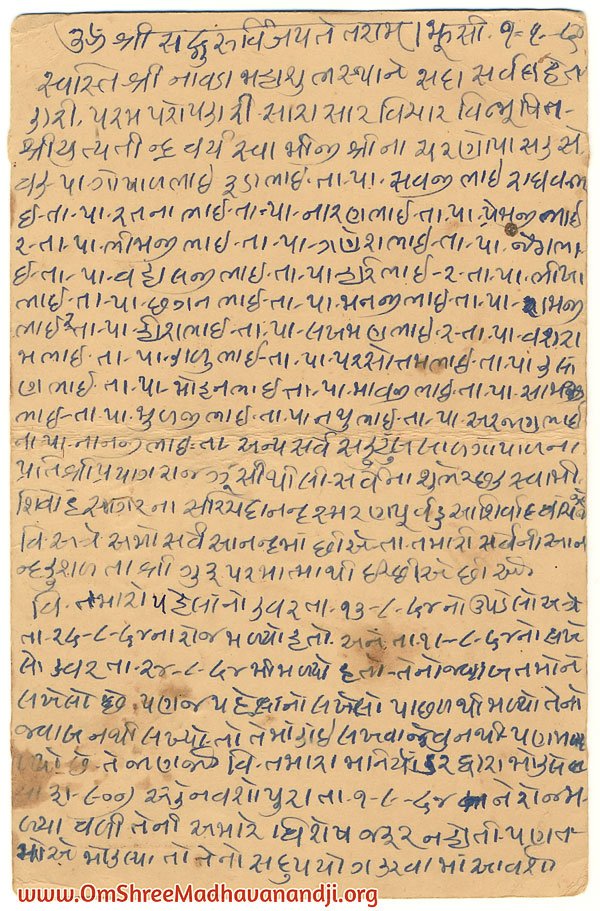 ૐ શ્રી સદ્ગુરુર્વિજયતેતરામ્ । ઝૂસી. ૧-૯-
સ્વસ્તિ શ્રી નાવડા મહાશુભસ્થાને સદા સર્વલ હેત
કારી, પરમ પરોપકારી સારાસાર વિચાર વિભૂષિત
શ્રીયત્યતીન્દ્રવર્ય સ્વામીજી શ્રીના ચરણોપાસક સે
વક પા-ગોપાળભાઇ રૂડાભાઇ-તા-પા- સવજીભાઇ રાઘવભા
ઇ-તા-પા-રતનાભાઇ-તા-પા-નારણભાઇ-તા-પા-પ્રેમજીભાઇ
૨-તા-પા-ભીમજીભાઇ-તા-પા-ગણેશભાઇ-તા-પા-જેરાભા
ઇ-તા-પા-વહાલજીભાઇ-તા-પા-હરિભાઇ-૨-તા-પા-ભીખા
ભાઇ-તા-પા-છગનભાઇ-તા-પા-મનજીભાઇ-તા-પા-રામજી
ભાઇ ૨ તા-પા-હીરાભાઇ-તા-પા-લખમણભાઇ-૨-તા-પા-વશરા
મભાઇ-તા-પા-કાળુભાઇ-તા-પા-પરસોતમભાઇ-તા-પા-
ભાઇ-તા-પા-મોહનભાઇ-તા-પા-માવજીભાઇ-તા-પા-સામજી
ભાઇ-તા-પા-મુળજીભાઇ-તા-પા-નથુભાઇ-તા-પા-અરજણભાઇ
તા-પા-નાનજીભાઇ-તા- અન્ય સર્વ સકુટુંબ બાળગોપાળના
પ્રતિ શ્રી પ્રયાગરાજ ઝૂસીથી લી-સર્વના શુભેચ્છક સ્વામી
સાગરના સચ્ચિદાનન્દ સ્મરણપૂર્વક આશિર્વાદ
વિ-અત્રે અમો સર્વે આનન્દમાં છીએ તા-તમારી સર્વની આન
ન્દ કુશળતા શ્રી ગુરુ પરમાત્માથી ઇચ્છીએ છીએ
વિ-તમારો પહેલાંનો કવર તા-૧૩-૮-૬૪નો ઉપડેલો અત્રે
તા-૨૬-૮-૬૪ના રોજ મળ્યો હતો અને તા-૧૮-૮-૬૪નો લખે
લો કવર તા-૨૪-૮-૬૪મી મળ્યો હતો-તેનો જવાબ તમોને
લખેલો છે. પણ જે પહેલાનો લખેલો પાછળથી મળ્યો તેનો
જવાબ નથી લખ્યો-તો તેમાં કાંઇ લખવા જેવું નથી-પણ મ
ળ્યો છે તે જાણજો વિ-તમારા મનિયાર્ડર દ્વારા મોકલેલ
રૂા-૯૦૦) અંકે નવશો પુરા તા-૧-૯-૬૪ ને રોજ મ
ળ્યા વળી તેની અમારે વિશેષ જરૂર નહોતી-પણ ત
મોએ મોકલ્યા તો તેનો સદુપયોગ કરવામાં આવશે
www.OmShreeMadhavanandji.org